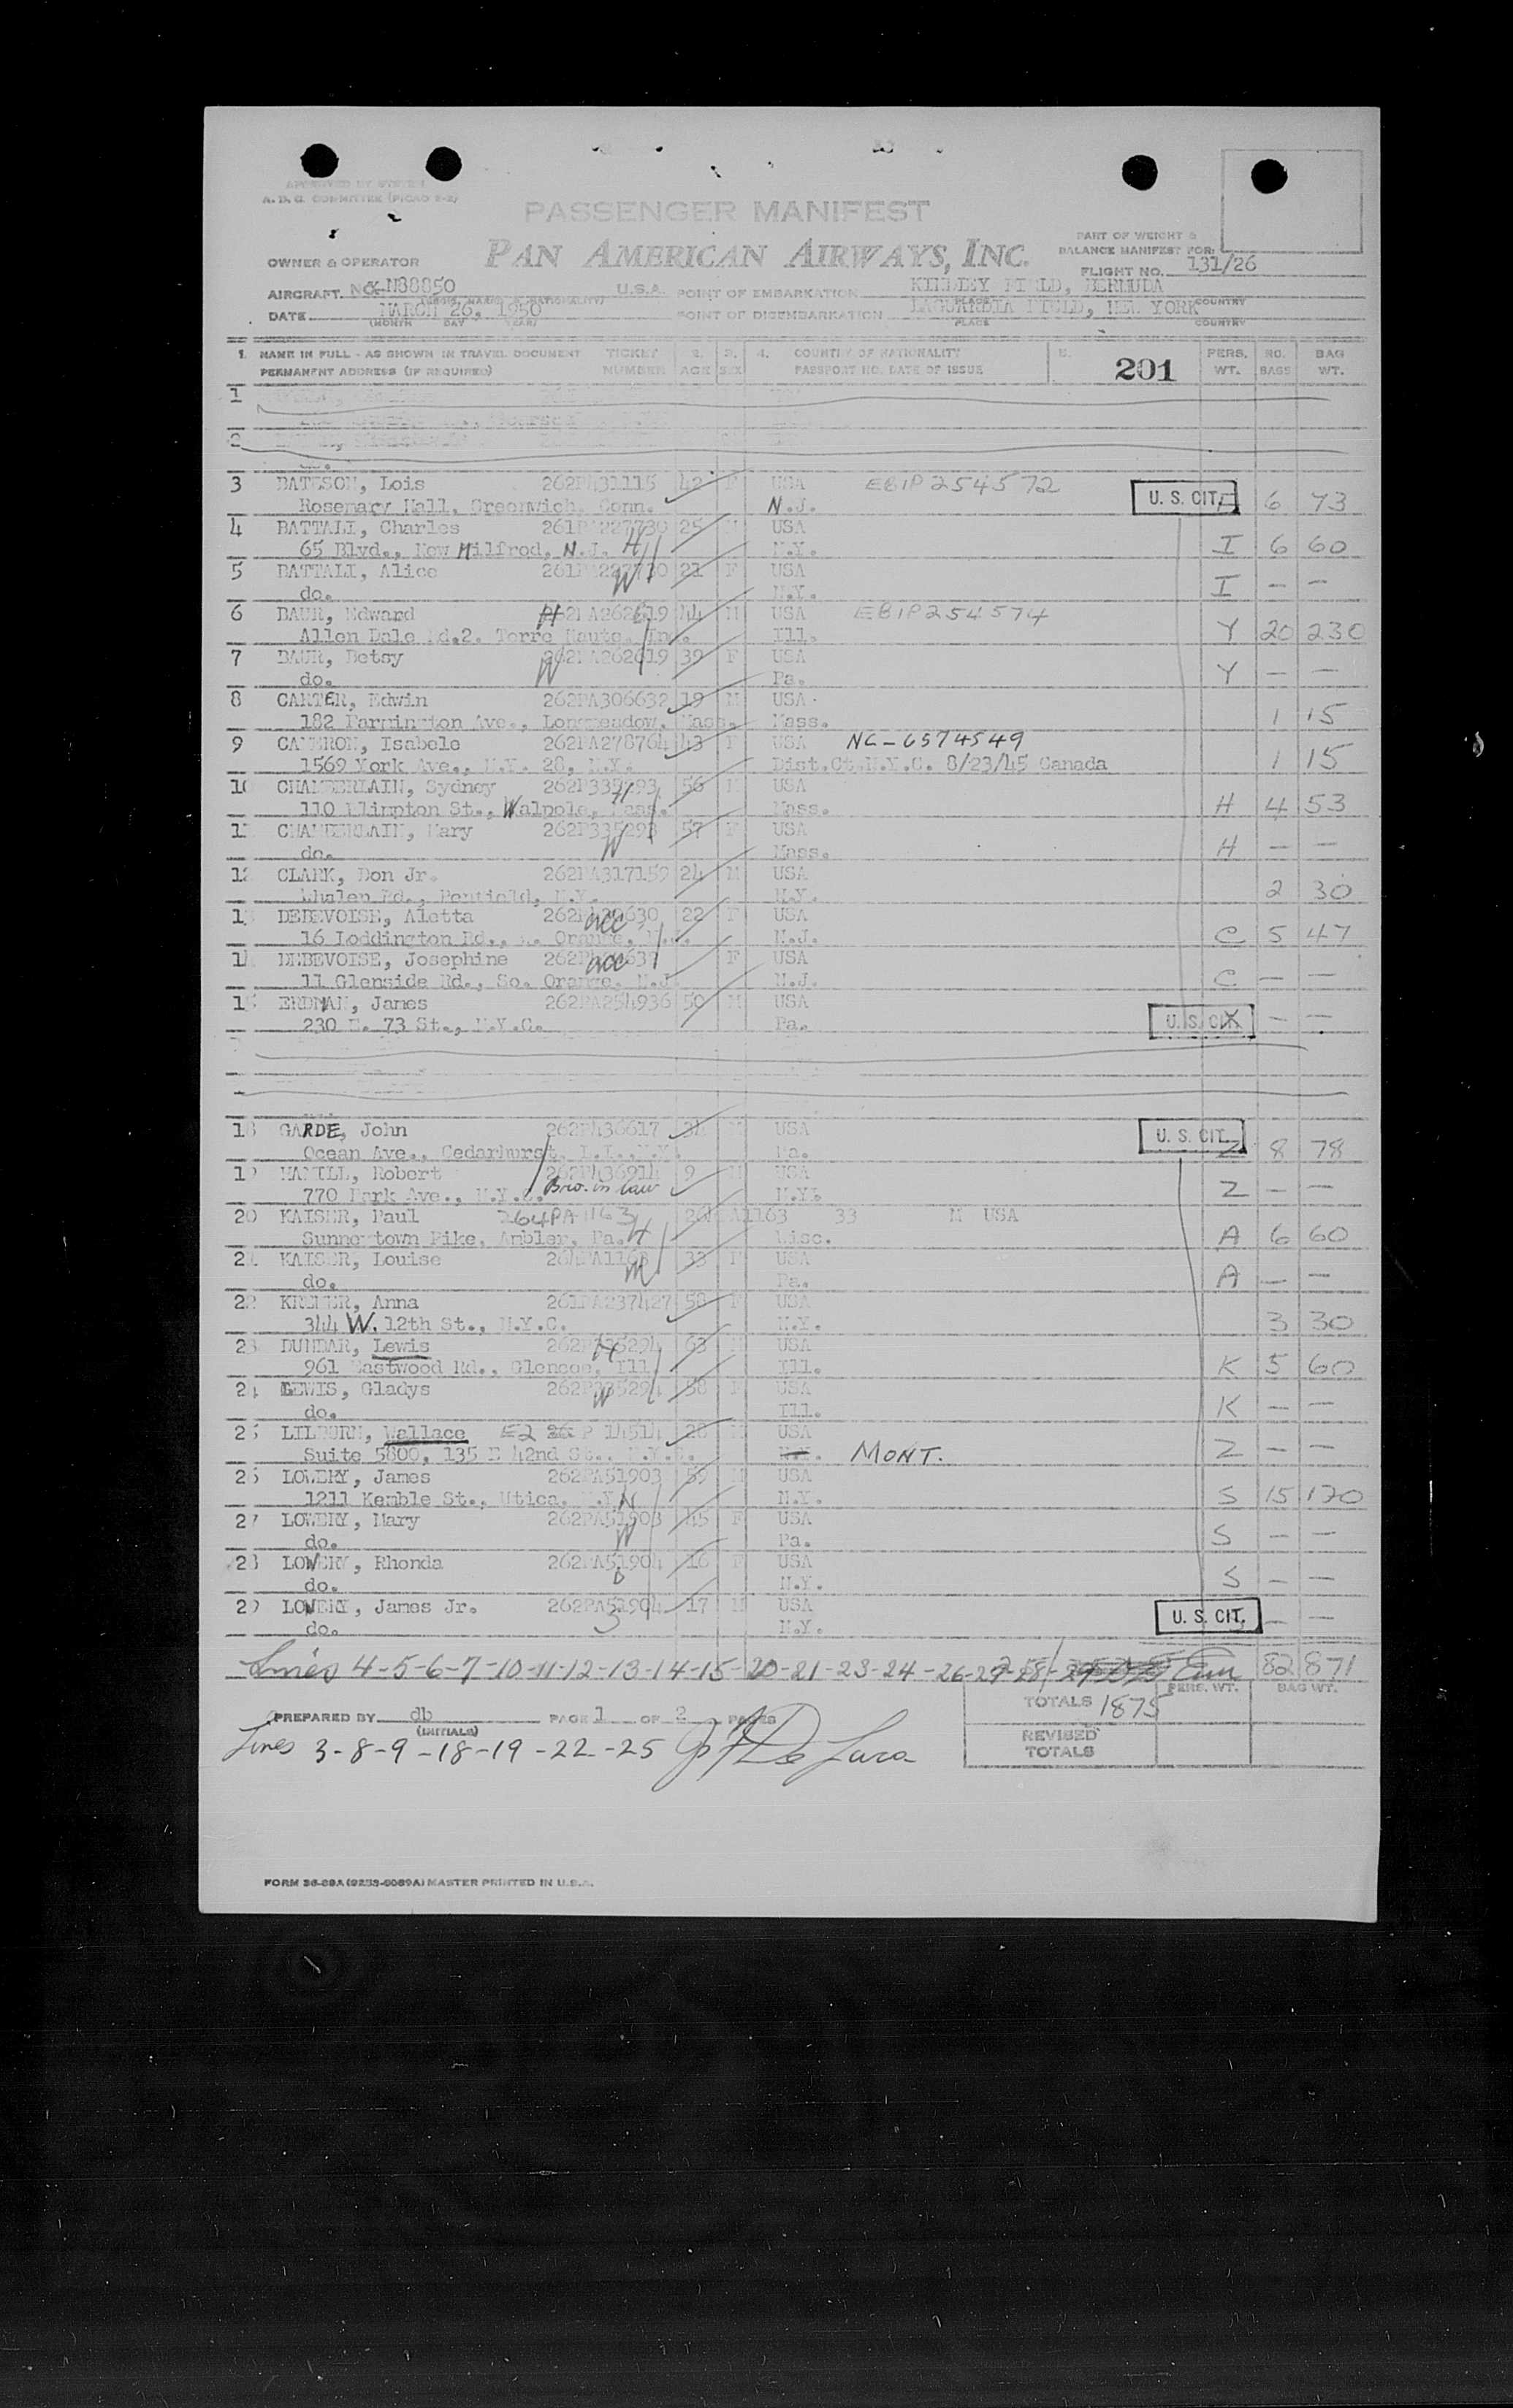 APPROVED BY
A. D. C. COMMITTEE (PICAO 2-2)
PASSENGER MANIFEST
PAN AMERICAN AIRWAYS, INC.
PART OF WEIGHT &
BALANCE MANIFEST FOR:
FLIGHT NO. 131/26
OWNER & OPERATOR
AIRCRAFT N88850 U.S.A. POINT OF EMBARKATION KINDLEY FIELD, BERMUDA
DATE MARCH 26, 1950 POINT OF DISEMBARKATION LAGUARDIA FIELD, NEW YORK
(MONTH DAY YEAR) PLACE COUNTRY
1. NAME IN FULL - AS SHOWN IN TRAVEL DOCUMENT TICKET 2. 3. 4. COUNTRY OF NATIONALITY 5. 201 PERS. NO. BAG
PERMANENT ADDRESS (IF REQUIRED) NUMBER AGE SEX PASSPORT NO. DATE OF ISSUE WT. BAGS WT.
1
2
do.
3 BATESON, Lois 262P431115 42 F USA EBIP254572
Rosemary Hall, Greenwich, Conn. N.J. U. S. CIT. 6 73
4 BATTALI, Charles 25 M USA
65 Blvd., New Milfrod, N.J. H N.Y. I 6 60
5 BATTALI, Alice 21 F USA
do. W N.Y. I — —
6 BAUR, Edward H 44 M USA EBIP254574
Allen Dale Rd.2. Terre Haute, Ind. Ill. Y 20 230
7 BAUR, Betsy 262PA262619 39 F USA
do. W Pa. Y — —
8 CARTER, Edwin 262PA306632 19 M USA
182 Farmington Ave., Longmeadow, Mass. Mass. 1 15
9 CAMERON, Isabele 262PA278764 43 F USA NC-6574549
1569 York Ave., N.Y. 28, N.Y. Dist.Ct.N.Y.C. 8/23/45 Canada 1 15
10 CHAMBERLAIN, Sydney 262P335293 56 M USA
110 Plimpton St., Walpole, Mass. H Mass. H 4 53
11 CHAMBERLAIN, Mary 262P335293 57 F USA
do. W Mass. H — —
12 CLARK, Don Jr. 262PA317159 24 M USA
Whalen Rd., Penfield, N.Y. N.Y. 2 30
13 DEBEVOISE, Aletta acc 22 F USA
16 Loddington Rd., Orange, N.J. N.J. C 5 47
14 DEBEVOISE, Josephine acc F USA
11 Glenside Rd., So. Orange, N.J. N.J. C — —
15 ERDMAN, James 262PA254936 50 M USA
230 E. 73 St., N.Y.C. Pa. U. S. CIT. X — —
18 GARDE, John 262P436617 34 M USA
Ocean Ave., Cedarhurst, L.I., N.Y. Pa. U. S. CIT. Z 8 78
19 HAMILL, Robert 262P436914 9 M USA
770 Park Ave., N.Y.C. Bro. in law N.Y. Z — —
20 KAISER, Paul 264PA1163 264PA1163 33 M USA
Sunneytown Pike, Ambler, Pa. H Wisc. A 6 60
21 KAISER, Louise 264PA1163 33 F USA
do. W Pa. A — —
22 KREMER, Anna 261PA237427 58 F USA
344 W. 12th St., N.Y.C. N.Y. 3 30
23 DUNBAR, Lewis H 63 M USA
961 Eastwood Rd., Glencoe, Ill. Ill. K 5 60
24 LEWIS, Gladys W 58 F USA
do. Ill. K — —
25 LILBORN, Wallace E2 P 14514 26 M USA
Suite 5800, 135 E 42nd St., N.Y.C. N.Y. MONT. Z — —
26 LOWERY, James 262PA51903 59 M USA
1211 Kemble St., Utica, N.Y. H N.Y. S 15 170
27 LOWERY, Mary 262PA51903 45 F USA
do. W Pa. S — —
28 LOWERY, Rhonda 262PA51904 16 F USA
do. D N.Y. S — —
29 LOWERY, James Jr. 262PA51904 17 M USA
do. S N.Y. U. S. CIT. — —
Lines 4-5-6-7-10-11-12-13-14-15-20-21-23-24-26-27-28/ 82 871
PERS. WT. BAG WT.
TOTALS 1875
PREPARED BY db PAGE 1 OF 2 PAGES
(INITIALS)
REVISED
TOTALS
Lines 3-8-9-18-19-22-25 De Lara
FORM 36-89A (9253-0089A) MASTER PRINTED IN U.S.A.